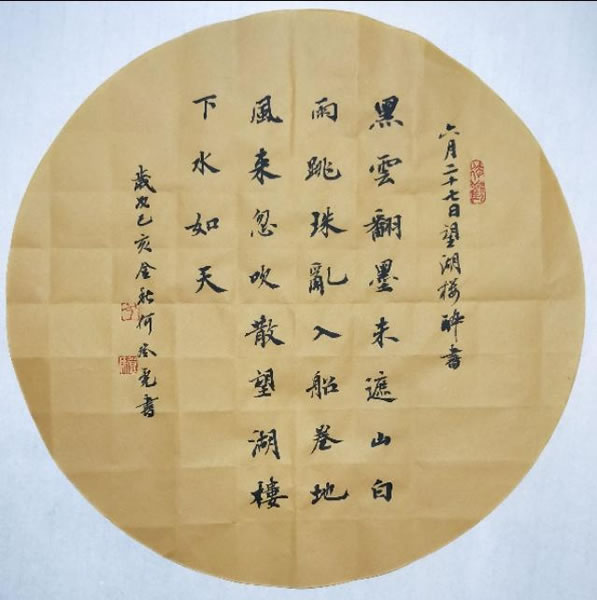 六月二十七日望湖楼醉書
黑雲翻墨未遮山白
雨跳珠亂入船卷地
風来忽吹散望湖樓
下水如天
歲次己亥金秋何亮書